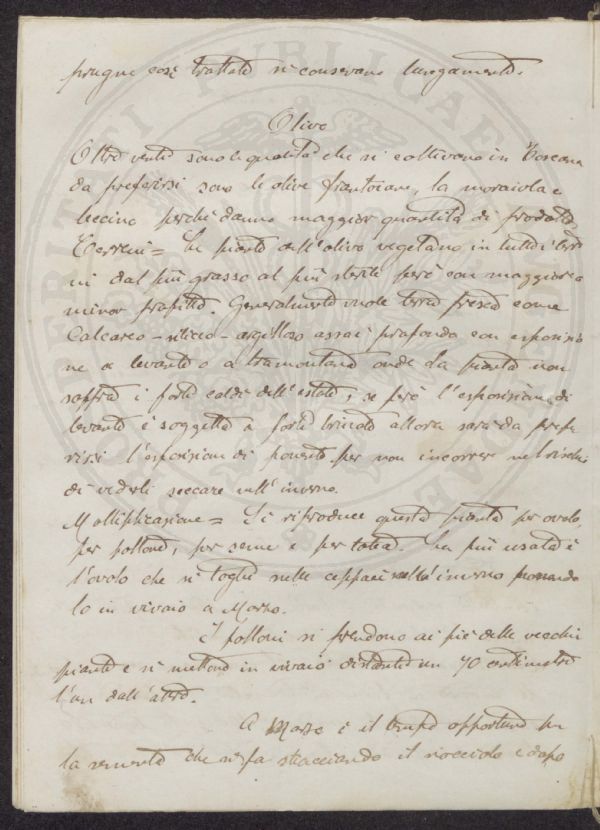 prugne così trattate si conservano lungamente.
Olivo
Oltre venti sono le qualità che si coltivano in Toscana
da preferirsi sono le olive frantoiane, la moraiola e
leccino perché danno maggior quantità di prodotto
Terreni = Le piante dell'olivo vegetano in tutti i terre
ni dal più grasso al più sterile però con maggiore o
minor profitto. Generalmente vuole terra fresca come
Calcareo - siliceo - argilloso assai profondo con esposizio
ne a levante o a tramontana onde la pianta non
soffra i forti caldi dell'estate, se però l'esposizione di
levante è soggetta a forti brinate allora sarà da prefe
rirsi l'esposizione di ponente per non incorrere nel rischio
di vederli seccare nell'inverno.
Moltiplicazione = Si riproduce questa pianta per ovolo,
per pollone, per seme e per talea. La più usata è
l'ovolo che si toglie nelle ceppaie nell'inverno ponendo
lo in vivaio a Marzo.
I polloni si prendono ai piè delle vecchie
piante e si mettono in vivaio distante un 70 centimetri
l'un dall'altro.
A Marzo è il tempo opportuno per
la sementa che si fa stiacciando il nocciolo e dopo